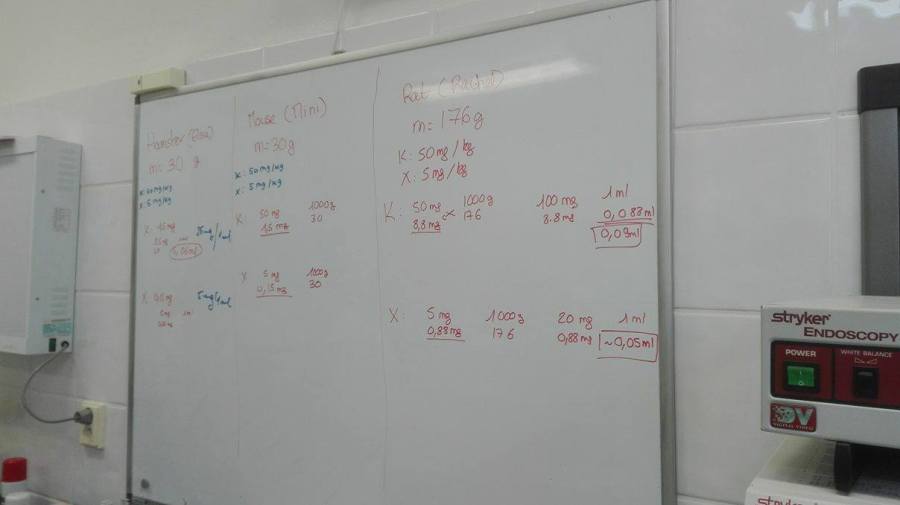 Hamster
m= 30 g
X: 5mg/kg
Mouse (Mini)
m=30g
K: 50mg/kg
X: 5mg/kg
K: 50 mg 1000g
1,5 mg 30
X 5 mg 1000g
0,15 mg 30
Rat (Rachel)
m= 176g
K: 50mg/kg
X: 5mg/kg
K: 50 mg 1000g 100 mg 1ml
8,8mg 176 8.8mg 0,088ml
0,09ml
X: 5 mg 1000g 20 mg 1ml
0,88mg 176 0,88mg ~0,05ml
5mg/1ml
stryker
ENDOSCOPY
POWER
WHITE BALANCE
DV
DIGITAL VIDEO
stryker